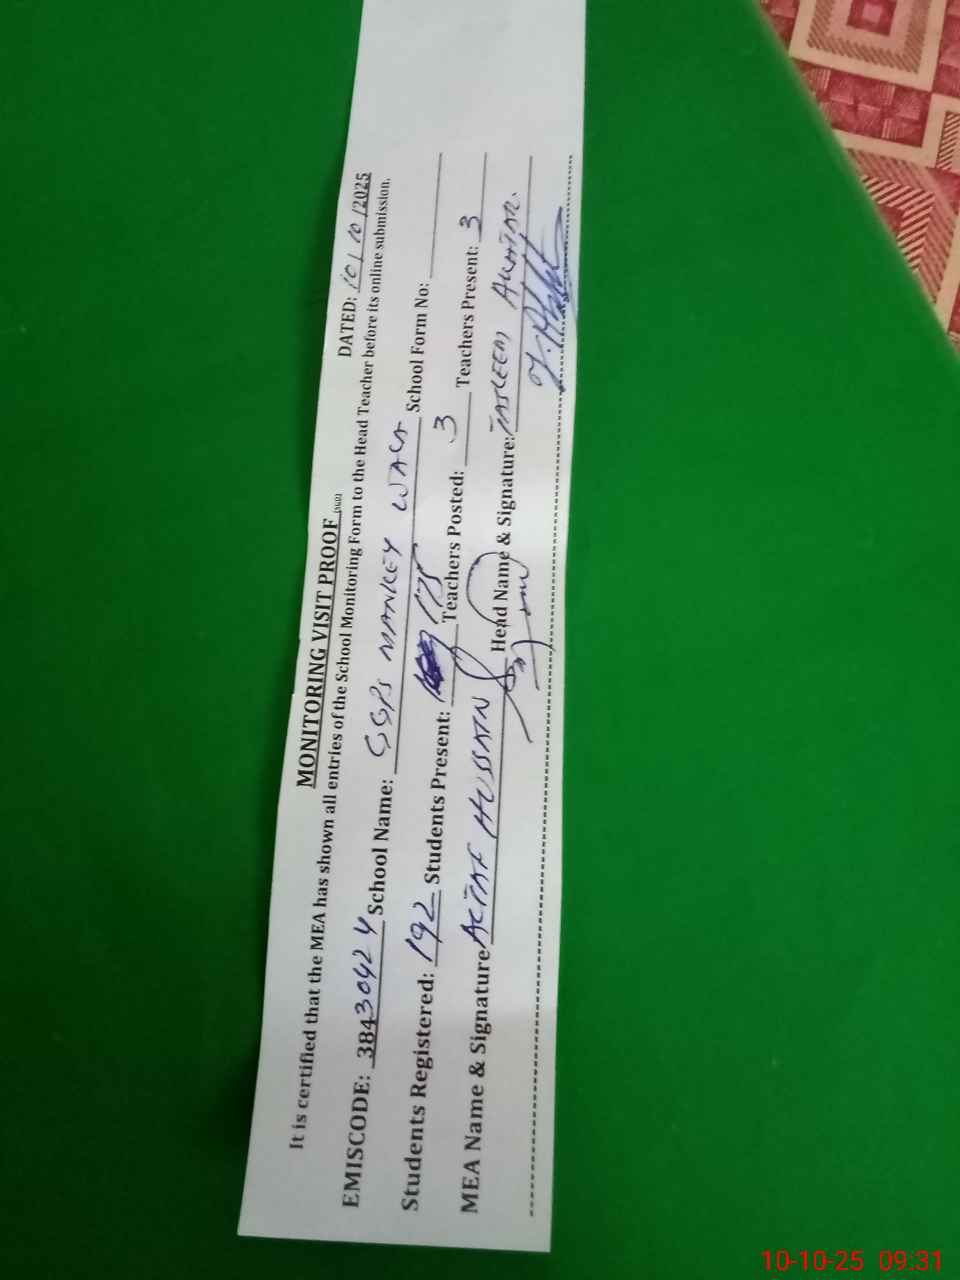 MONITORING VISIT PROOF
DATED: 10/10/2025
It is certified that the MEA has shown all entries of the School Monitoring Form to the Head Teacher before its online submission.
EMISCODE: 38430424 School Name: GGPS MANKEY WALA School Form No:
Students Registered: 192 Students Present: 175 Teachers Posted: 3 Teachers Present: 3
MEA Name & Signature ALTAF HUSSAIN Head Name & Signature: TASLEEM AKHTAR.
10-10-25 09:31